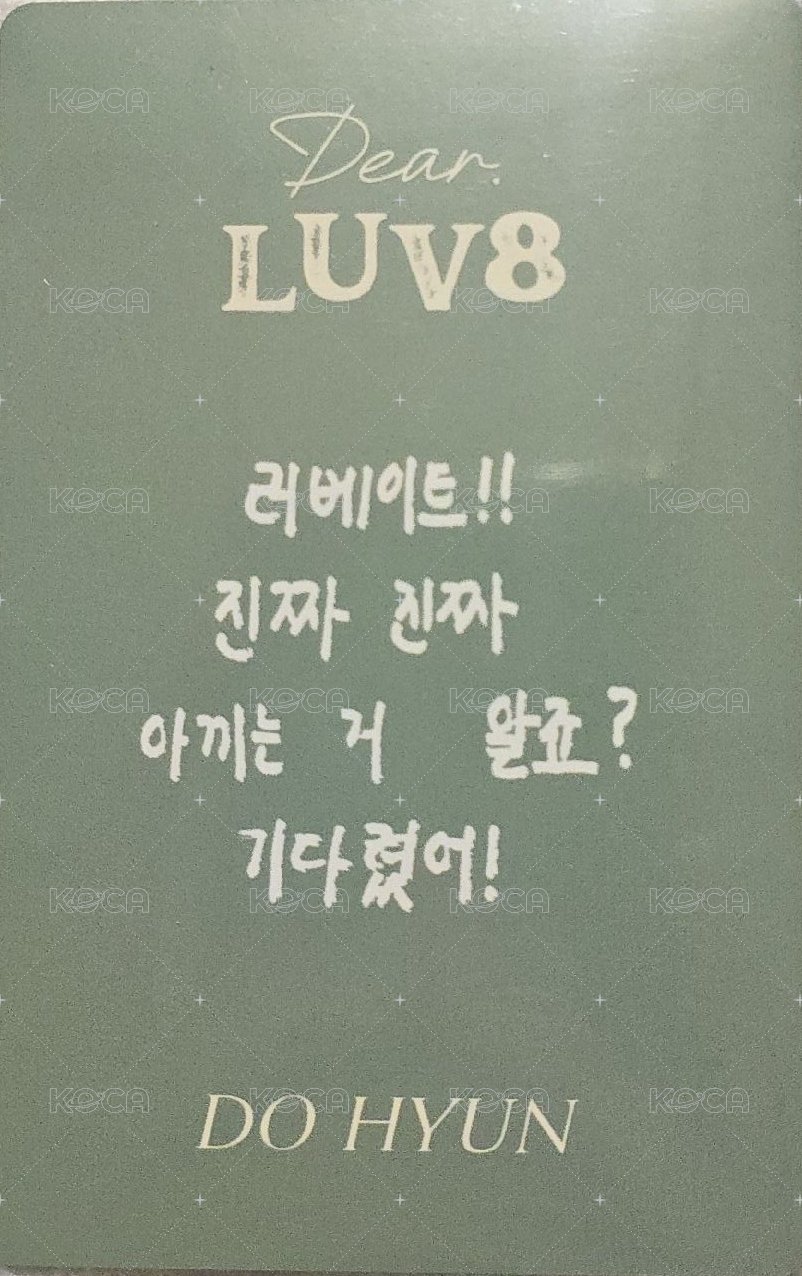 Dear.
LUV8
러베이트!!
진짜 진짜
아끼는 거 알죠?
기다렸어!
DO HYUN
KOCA